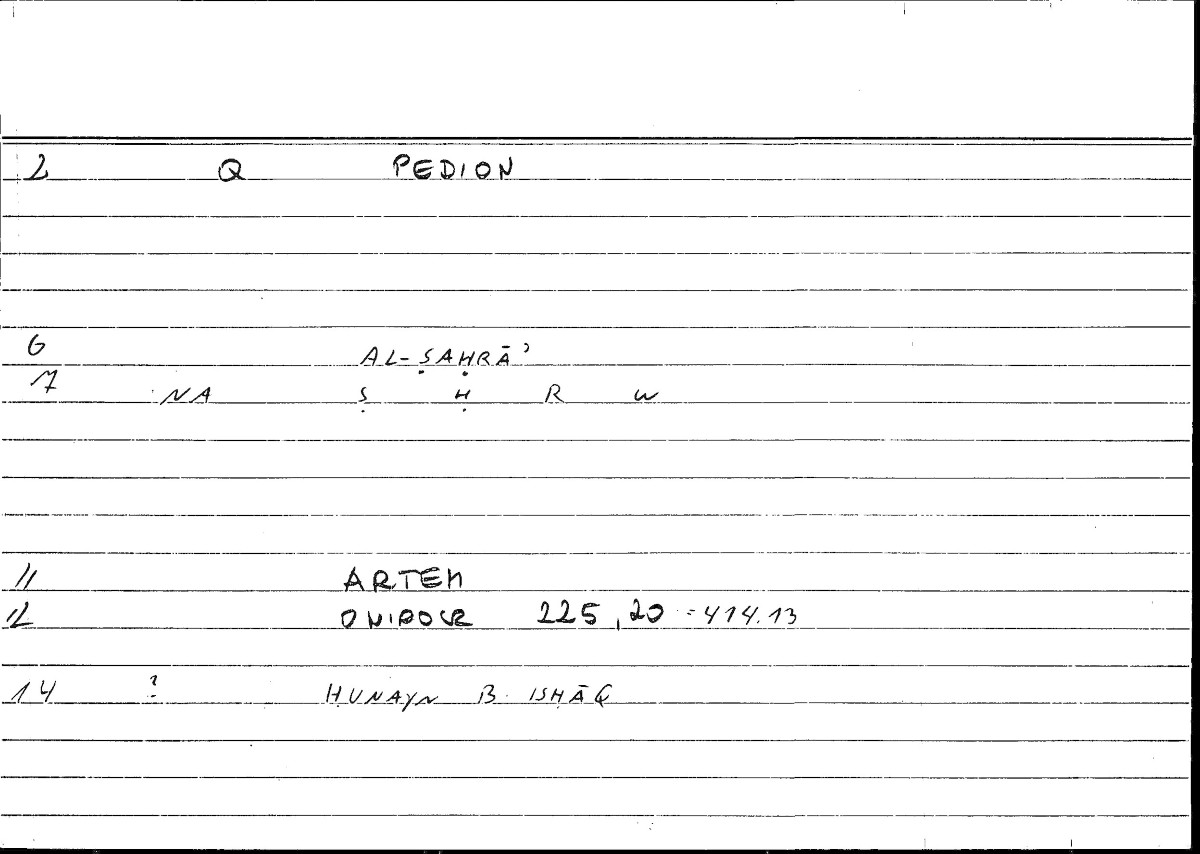 2 Q PEDION
6 AL-ṢAḤRĀʾ
7 NA Ṣ Ḥ R W
11 ARTEM
12 ONIROCR 225,20 = 414.13
14 ? ḤUNAYN B. ISḤĀQ